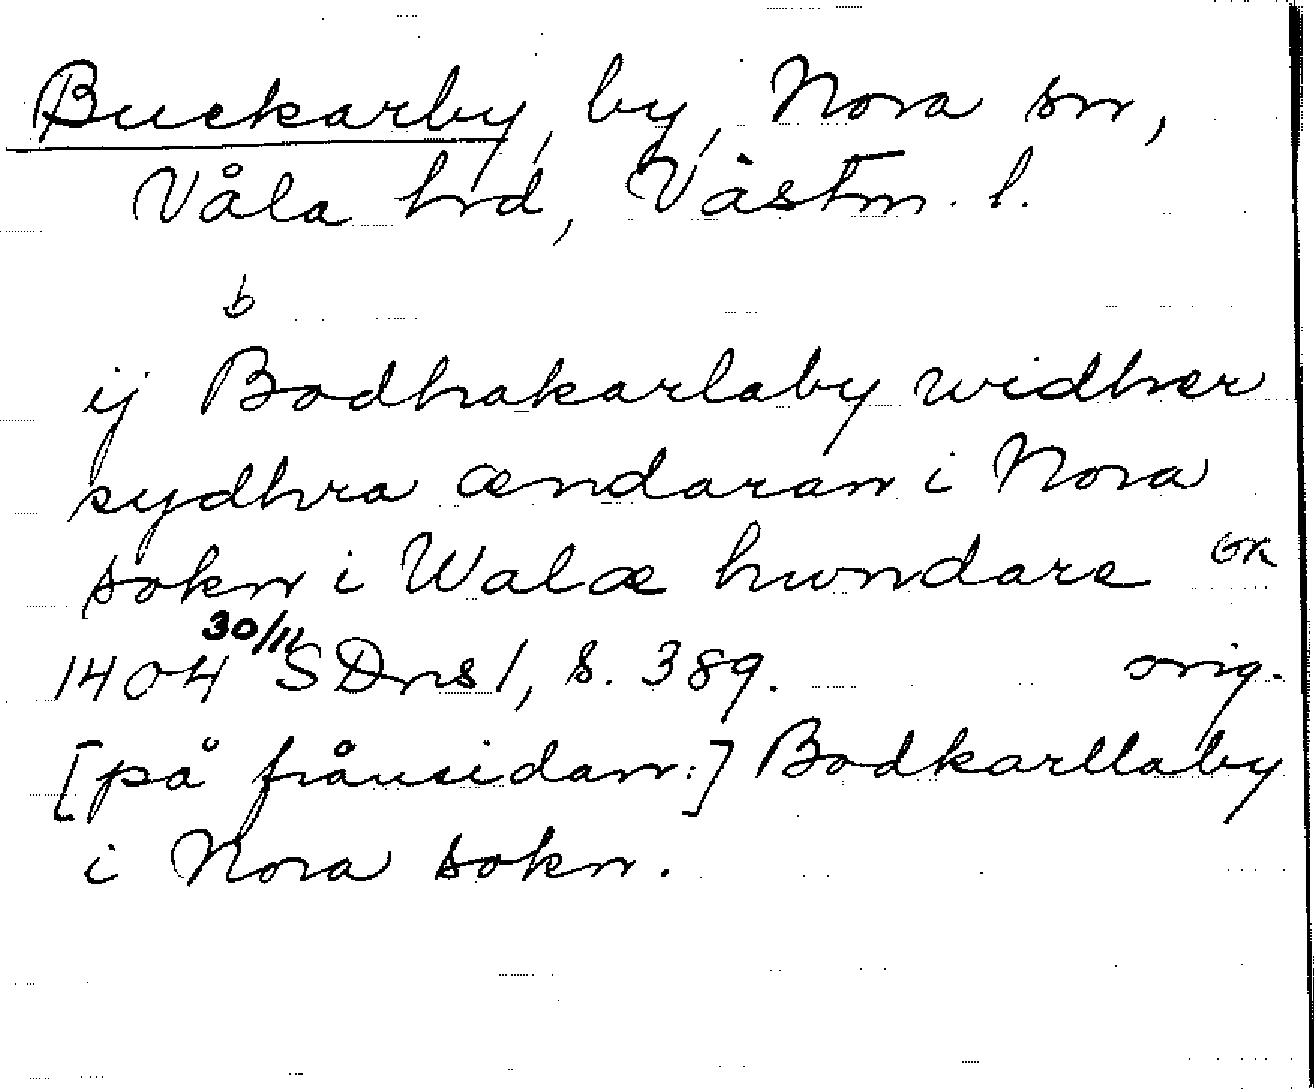 Buckarby, by, Nora sn,
Våla hrd, Västm. l.
b
ij Bodhakarlaby widher
sydhra ændaran i Nora
sokn i Walæ hundare
30/11
1404 SDns 1, s. 389. orig.
[på frånsidan:] Bodkarllaby
i Nora sokn.